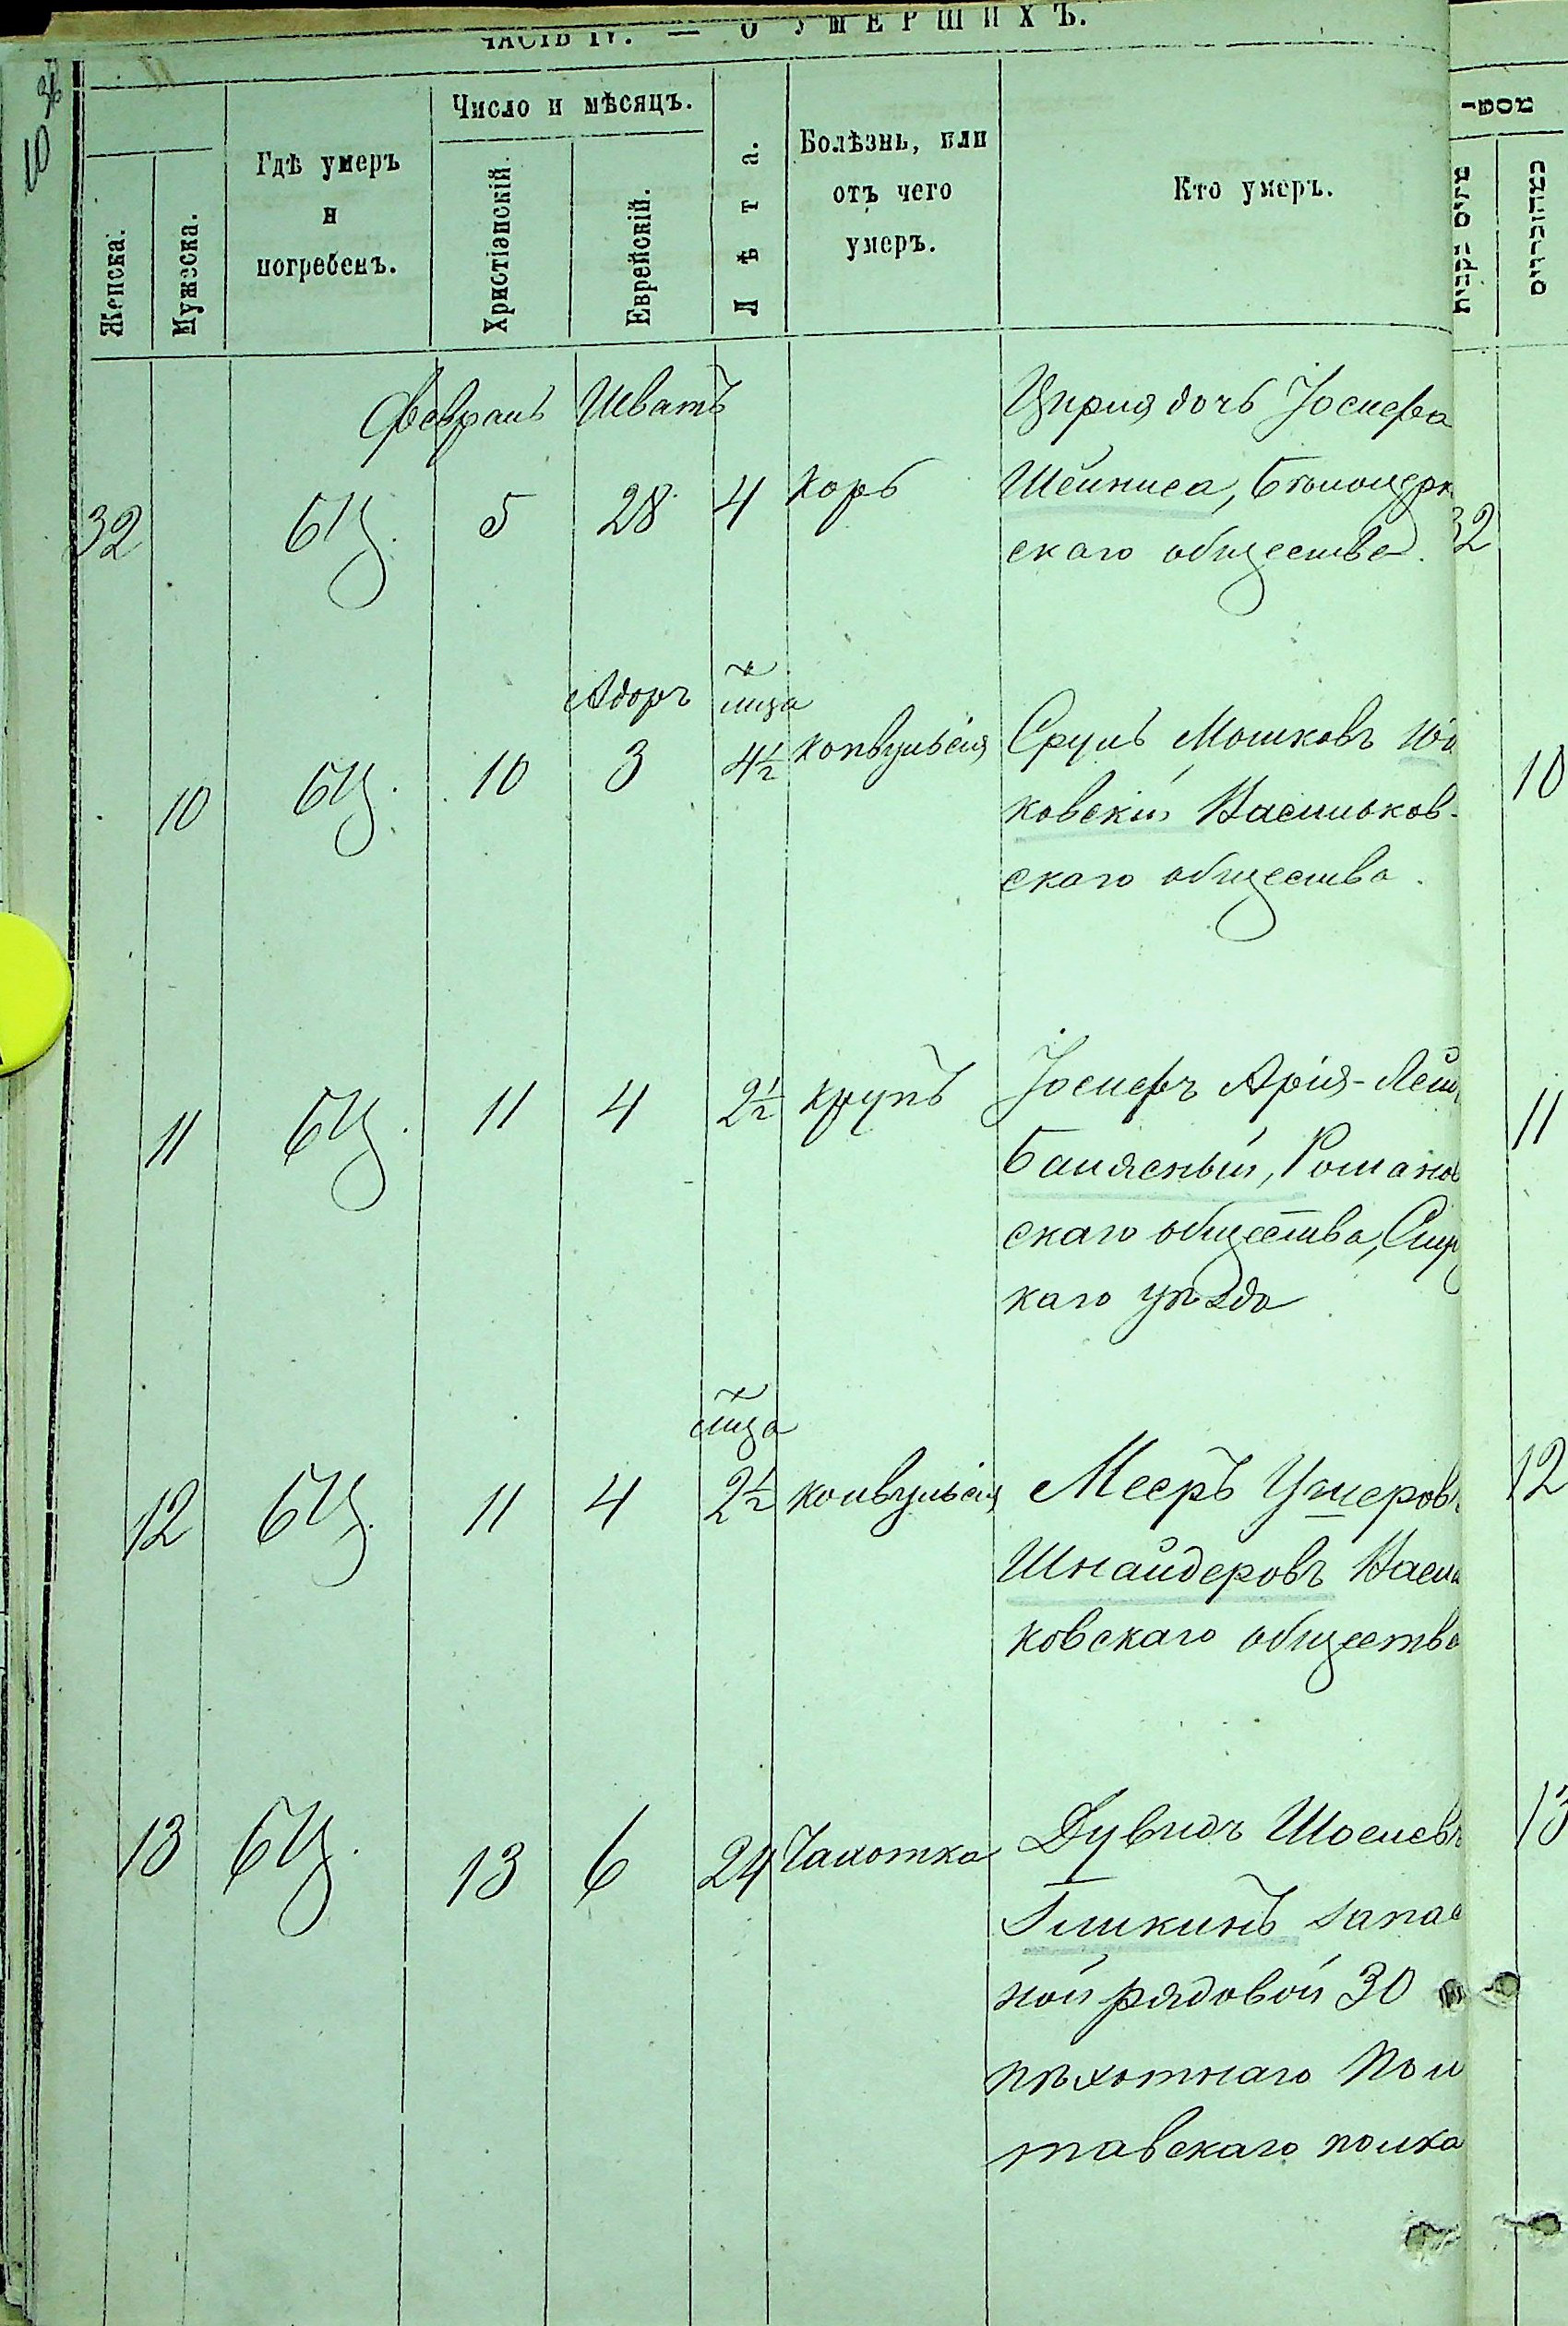 ЧАСТЬ IV. — О УМЕРШИХЪ.
10
Женска.
Мужеска.
Гдѣ умеръ
и
погребенъ.
Число и мѣсяцъ.
Христіанскій.
Еврейскій.
Лѣта.
Болѣзнь, или
отъ чего
умеръ.
Кто умеръ.
Февраль Шватъ
32 БЦ. 5 28 4 Корь
дочь Іосифа
Шейниса, Бѣлоцерк
скаго общества. 32
Адаръ
10 БЦ. 10 3 4½ конвульсія
Сруль Мошковъ
ковскій Васильков-
скаго общества. 10
11 БЦ. 11 4 2½ крупъ
Іосифъ Арія-Лейб
Балясный, Романов
скаго общества,
каго уѣзда 11
12 БЦ. 11 4 2½ конвульсія
Мееръ Ушеровъ
Шнайдеровъ Васил
ковскаго общества 12
13 БЦ. 13 6 24 Чахотка
Дувидъ
запас
ной рядовой 30
пѣхотнаго Пол
тавскаго полка 13